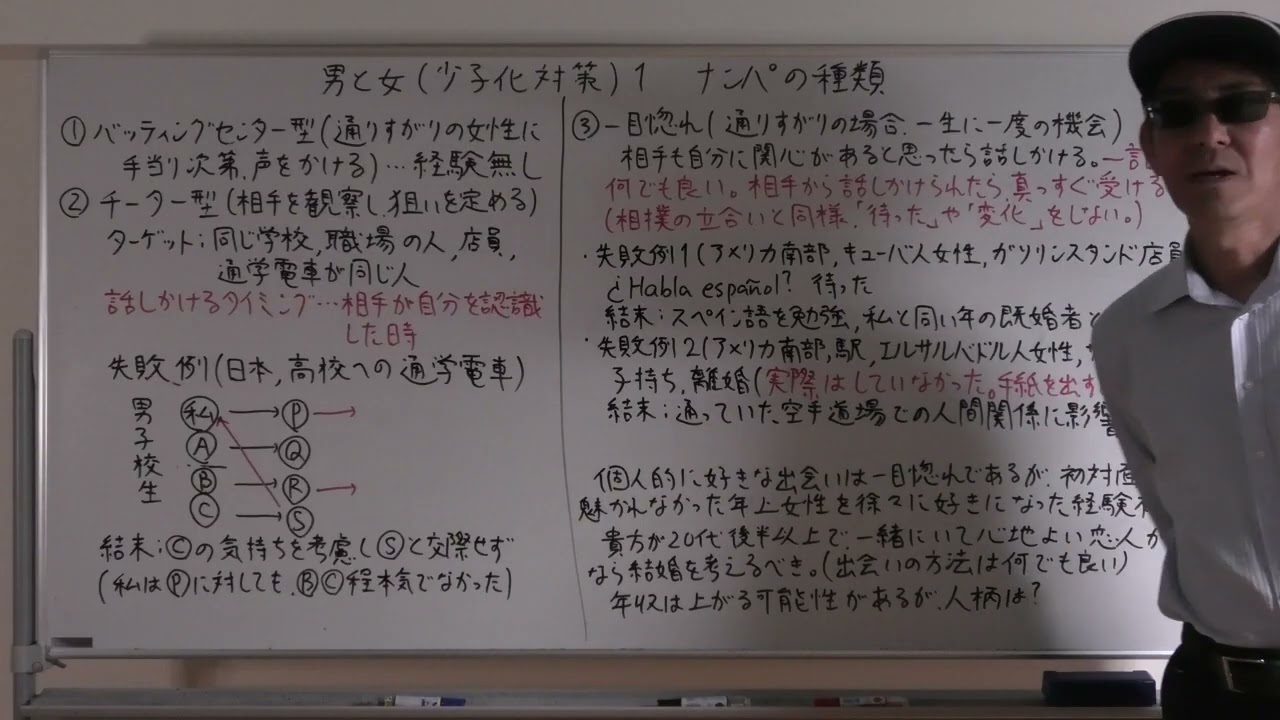 男と女(少子化対策)1 ナンパの種類
① バッティングセンター型(通りすがりの女性に
手当り次第、声をかける)…経験無し
② チーター型(相手を観察し、狙いを定める)
ターゲット;同じ学校、職場の人、店員、
通学電車が同じ人
話しかけるタイミング…相手が自分を認識
した時
失敗例1(日本、高校への通学電車)
男子校生
私 → P →
A → Q
B → R →
C → S
結末;Ⓒの気持ちを考慮しⓈと交際せず
(私はⓅに対しても、ⒷⒸ程本気でなかった)
③ 一目惚れ(通りすがりの場合、一生に一度の機会)
相手も自分に関心があると思ったら話しかける。一言
何でも良い。相手から話しかけられたら、真っすぐ受ける
(相撲の立合いと同様、「待った」や「変化」をしない。)
・失敗例1(アメリカ南部、キューバ人女性、ガソリンスタンド店員
¿Habla español? 待った
結末;スペイン語を勉強、私と同い年の既婚者と
・失敗例2(アメリカ南部、駅、エルサルバドル人女性、
子持ち、離婚(実際はしていなかった。手紙を出す
結末;通っていた空手道場での人間関係に影響
個人的に好きな出会いは一目惚れであるが、初対面
魅かれなかった年上女性を徐々に好きになった経験
貴方が20代後半以上で一緒にいて心地よい恋人が
なら結婚を考えるべき。(出会いの方法は何でも良い)
年収は上がる可能性があるが、人柄は?